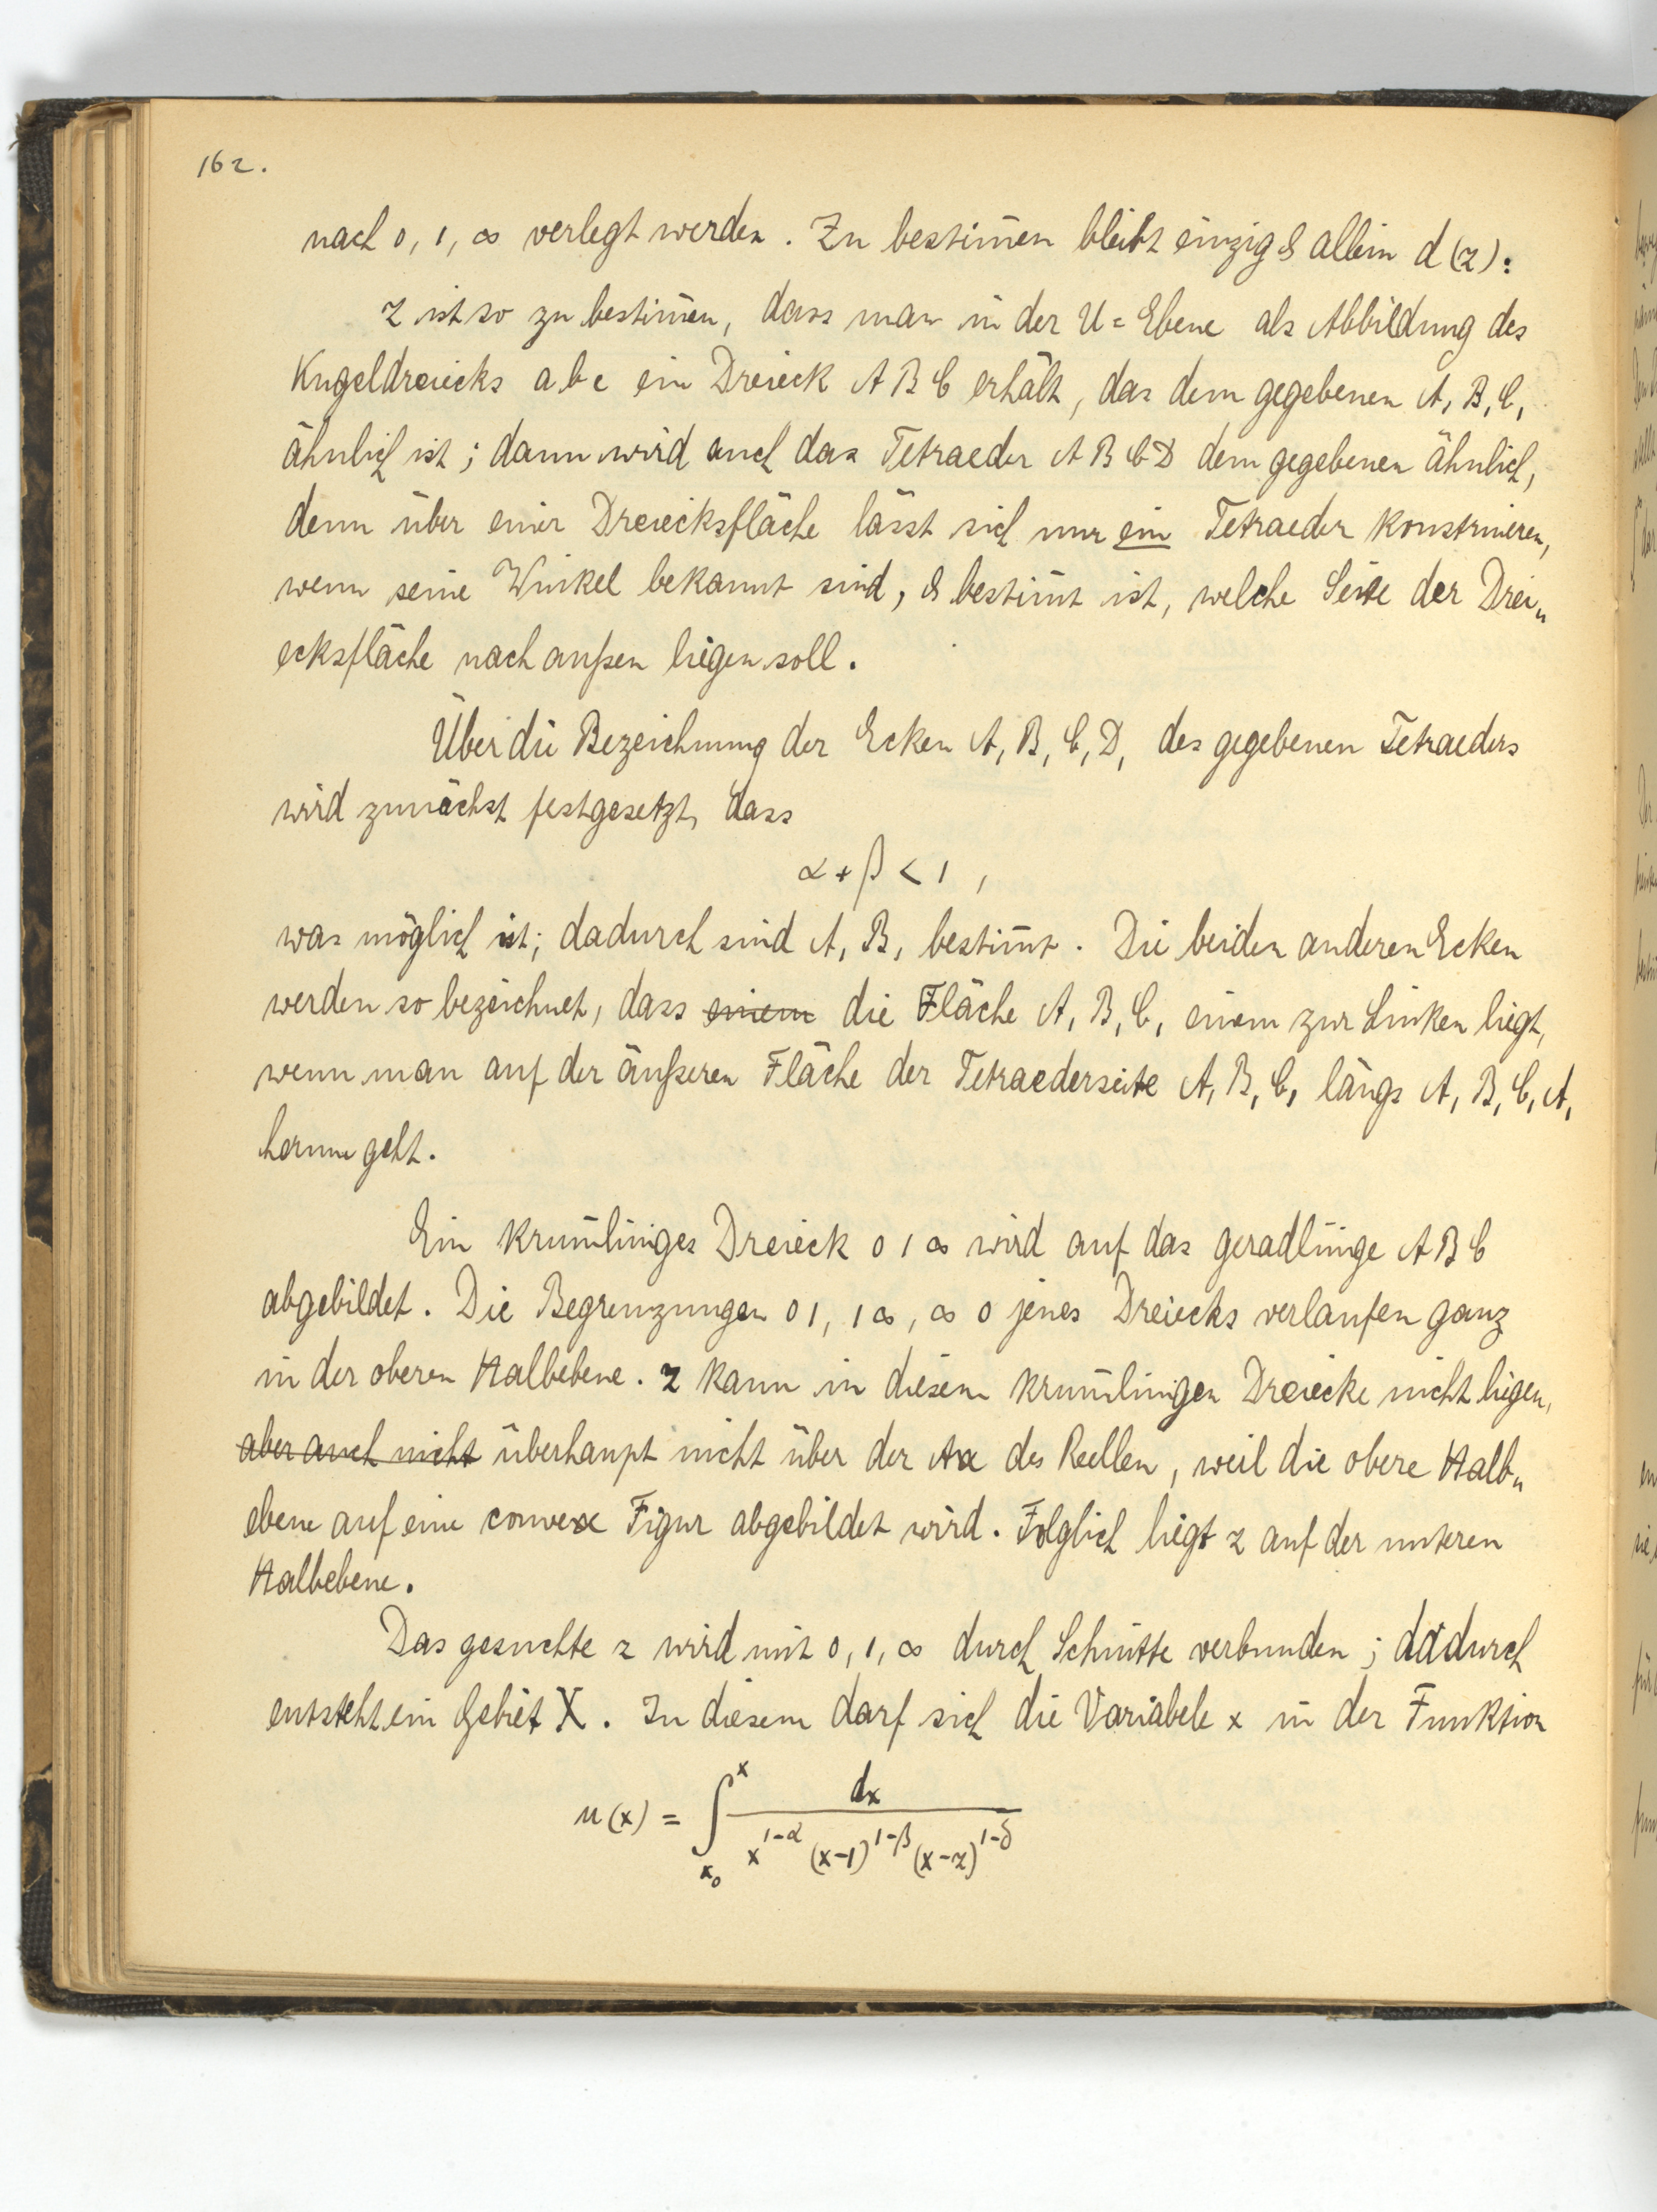 162.
nach 0, 1, ∞ verlegt werden. Zu bestim̄en bleibt einzig & allein d (z):
z ist so zu bestim̄en, dass man in der U = Ebene als Abbildung des
Kugeldreiecks a b c ein Dreieck A B C erhält, das dem gegebenen A₁ B₁ C₁
ähnlich ist; dann wird auch das Tetraeder A B C D dem gegebenen ähnlich,
denn über einer Dreiecksfläche lässt sich nur ein Tetraeder konstruieren,
wenn seine Winkel bekannt sind, & bestim̄t ist, welche Seite der Drei„
ecksfläche nach außen liegen soll.
Über die Bezeichnung der Ecken A₁ B₁ C₁ D₁ des gegebenen Tetraeders
wird zunächst festgesetzt, dass
α + β < 1 ,
was möglich ist; dadurch sind A₁ B₁ bestim̄t. Die beiden anderen Ecken
werden so bezeichnet, dass einem die Fläche A₁ B₁ C₁ einem zur Linken liegt,
wenn man auf der äußeren Fläche der Tetraederseite A₁ B₁ C₁ längs A₁ B₁ C₁ A₁
herum geht.
Ein krum̄liniges Dreieck 0 1 ∞ wird auf das geradlinige A B C
abgebildet. Die Begrenzungen 0 1, 1 ∞, ∞ 0 jenes Dreiecks verlaufen ganz
in der oberen Halbebene. z kann in diesem krum̄linigen Dreiecke nicht liegen,
aber auch nicht überhaupt nicht über der Axe des Reellen, weil die obere Halb„
ebene auf eine convexe Figur abgebildet wird. Folglich liegt z auf der unteren
Halbebene.
Das gesuchte z wird mit 0, 1, ∞ durch Schnitte verbunden; dadurch
entsteht ein Gebiet X. In diesem darf sich die Variabele x in der Funktion
u(x) = ∫_{x₀}^{x} dx / x^{1-α} (x-1)^{1-β} (x-z)^{1-δ}